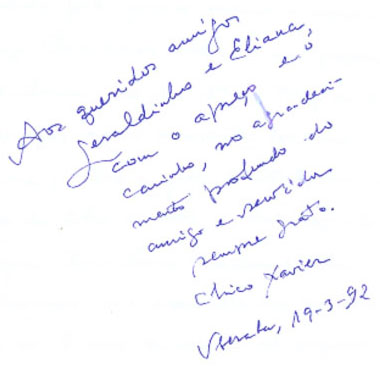 Aos queridos amigos
Geraldinho e Eliana,
com o apreço e o
carinho, no agradeci-
mento profundo do
amigo e servidor
sempre grato.
Chico Xavier
Uberaba, 19-3-92